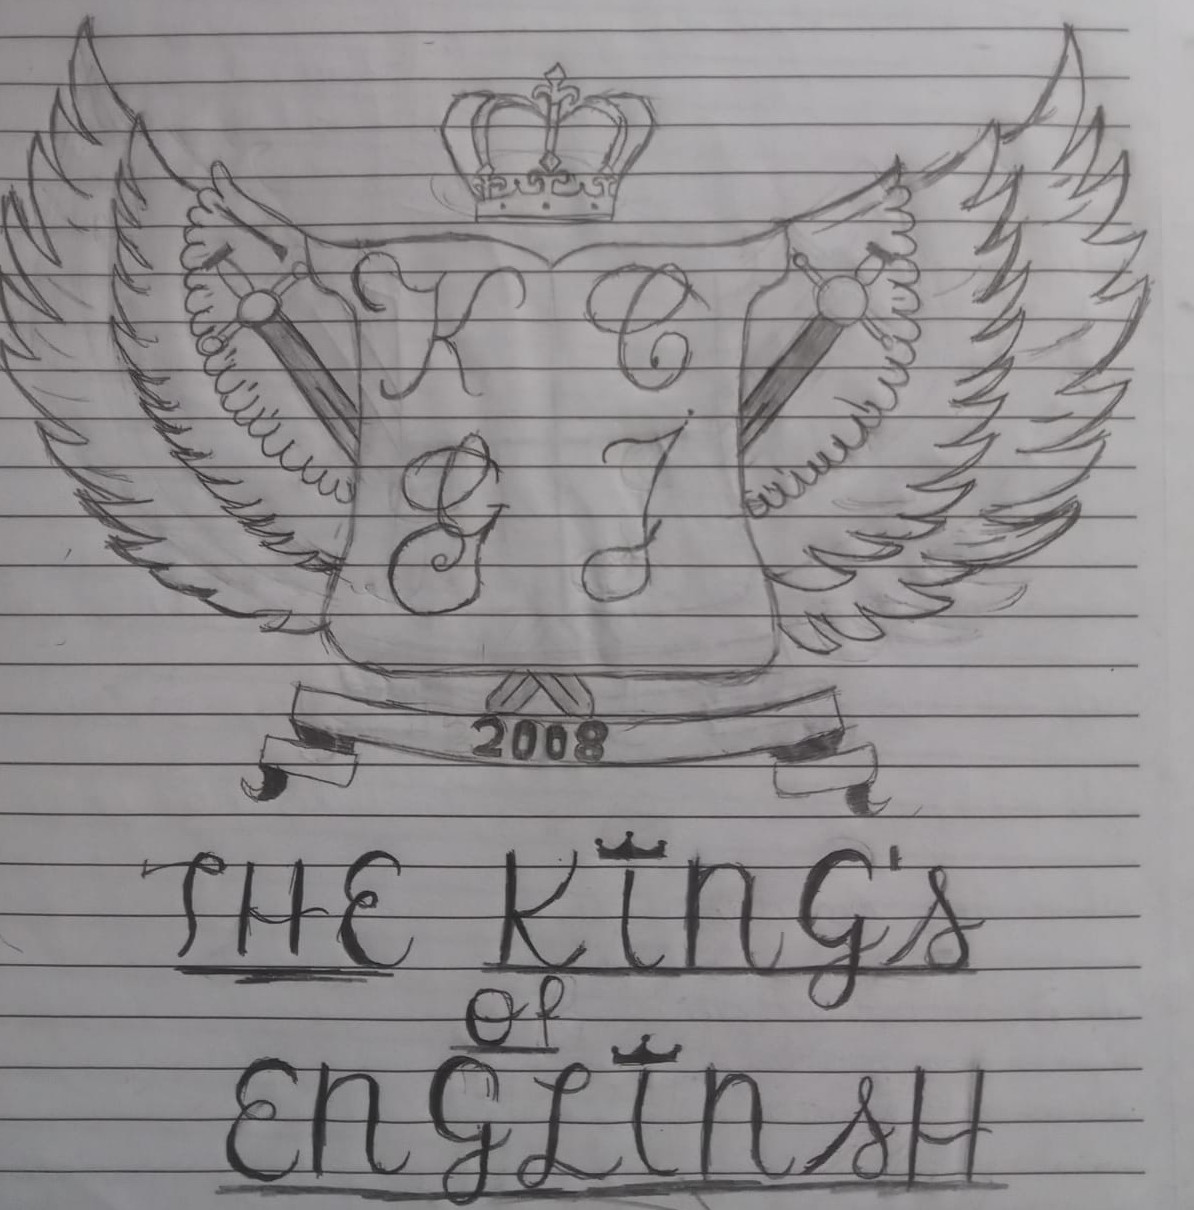 K C
G J
2008
THE KiNG's
Of
ENGLiNSH